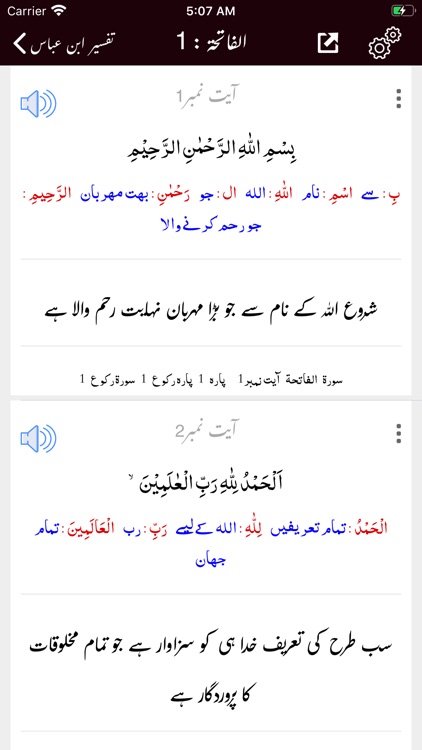 Carrier 5:07 AM
تفسیر ابن عباس الفاتحة : 1
آیت نمبر1
بِسْمِ اللّٰهِ الرَّحْمٰنِ الرَّحِیْمِ
بِ: سے اسْمِ: نام اللّٰهِ: الله ال: جو رَحْمٰنِ: بهت مهربان الرَّحِيمِ:
جو رحم کرنے والا
شروع اللہ کے نام سے جو بڑا مہربان نہایت رحم والا ہے
سورة الفاتحة آیت نمبر1 پاره 1 پاره رکوع 1 سورة رکوع 1
آیت نمبر2
اَلْحَمْدُ لِلّٰهِ رَبِّ الْعٰلَمِیْنَ ۙ
الْحَمْدُ: تمام تعریفیں لِلّٰهِ: الله کے لیے رَبِّ: رب الْعَالَمِينَ: تمام
جهان
سب طرح کی تعریف خدا ہی کو سزاوار ہے جو تمام مخلوقات
کا پروردگار ہے